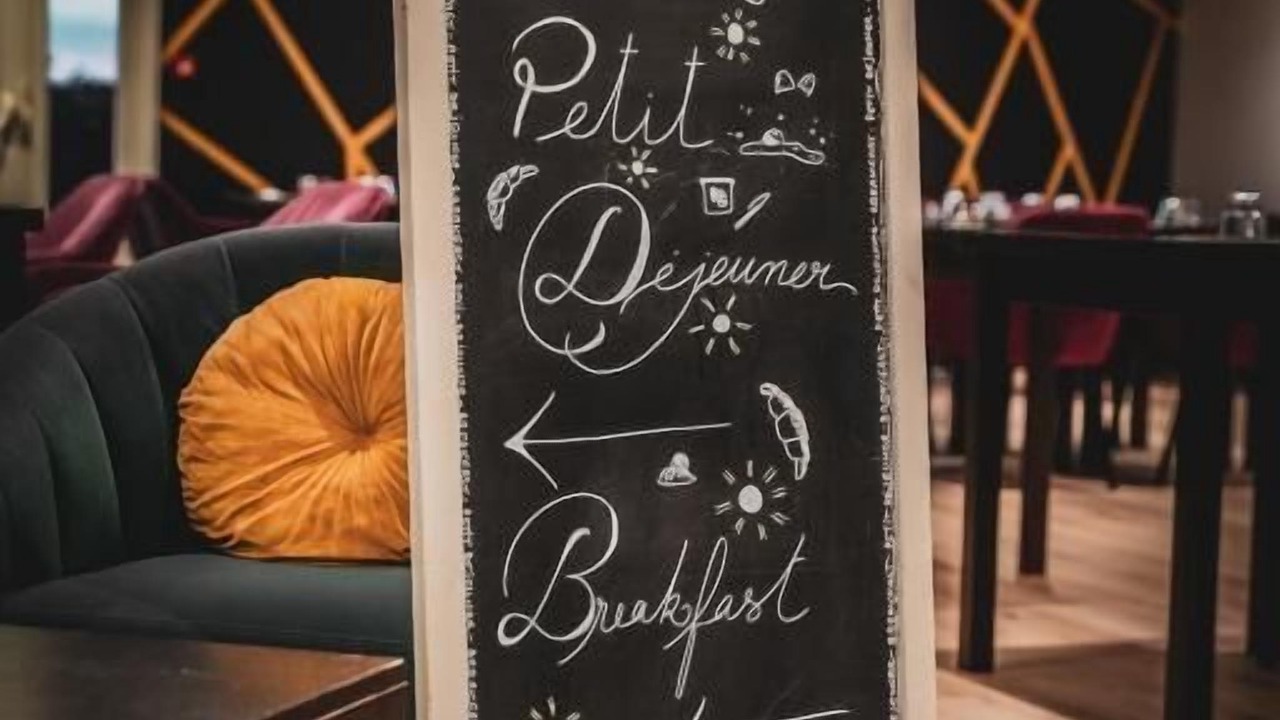 Petit
Déjeuner
Breakfast